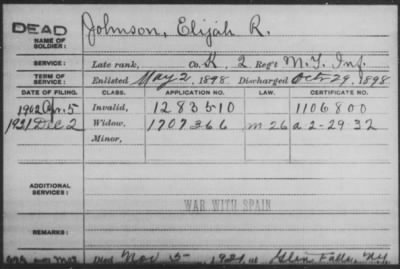 DEAD
Johnson, Elijah R.
NAME OF SOLDIER:
SERVICE: Late rank, Co. K, 2 Reg't N.Y. Inf.
TERM OF SERVICE: Enlisted May 2, 1898 Discharged Oct. 29, 1898
DATE OF FILING. CLASS. APPLICATION NO. LAW. CERTIFICATE NO.
1902 Apr. 5 Invalid, 1283510 1106800
1921 Dec 2 Widow, 1707366 m 26 a 2-29-32
Minor,
ADDITIONAL SERVICES:
WAR WITH SPAIN
REMARKS:
Died Nov 5 1921, at Glen Falls, N.Y.